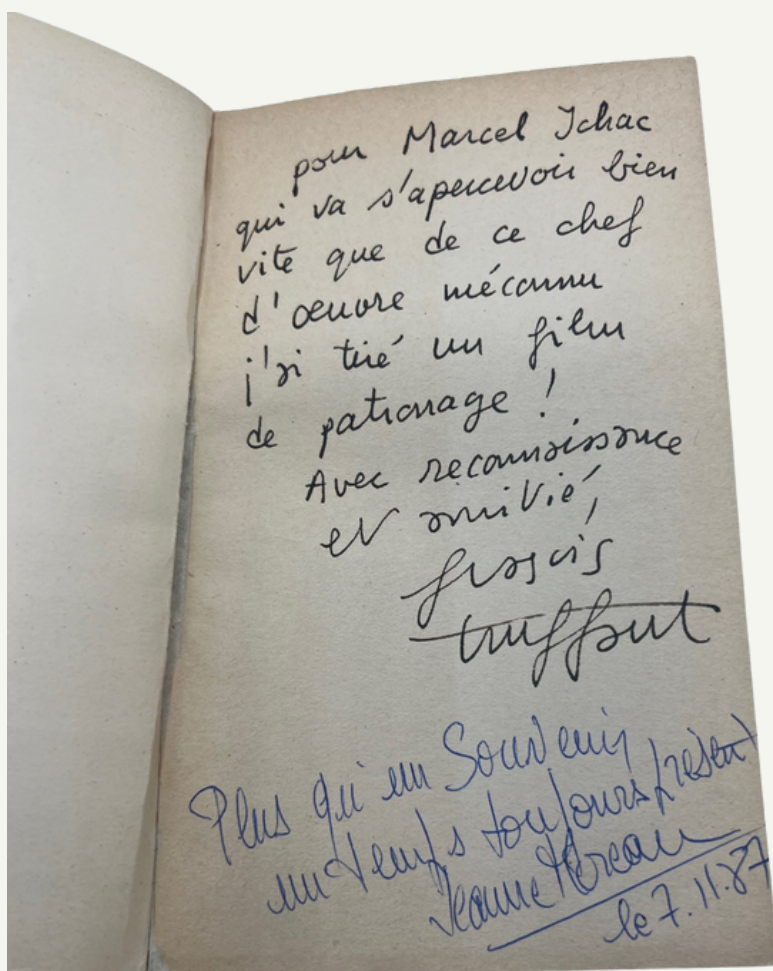 pour Marcel Ichac
qui va s'apercevoir bien
vite que de ce chef
d'œuvre méconnu
j'ai tiré un film
de patronage !
Avec reconnaissance
et amitié,
françois
truffaut
Plus qu'un Souvenir
un temps toujours présent
Jeanne Moreau
le 7.11.87